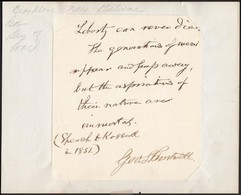 Liberty can never die.
The generations of men
appear and pass away,
but the aspirations of
their nature are
immortal.
(Speech to Kossuth
1851)